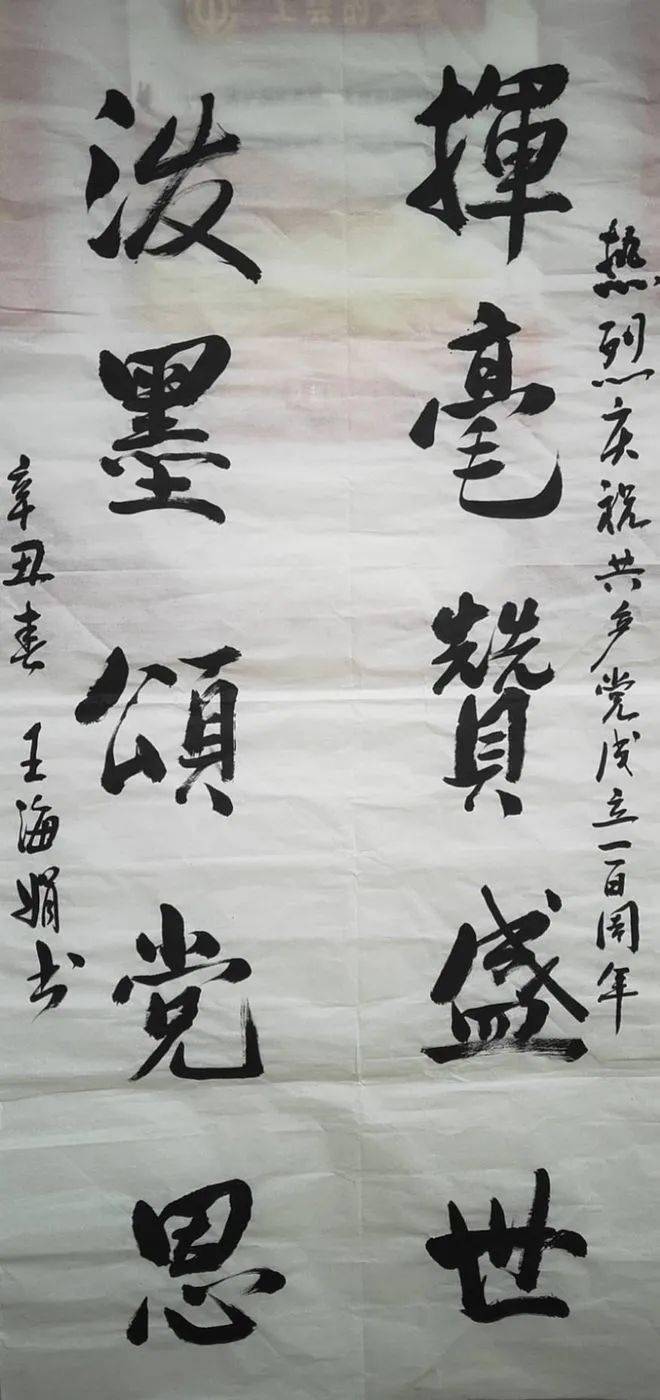 热烈庆祝共产党成立一百周年
揮毫贊盛世
泼墨頌党恩
辛丑春 王海娟书